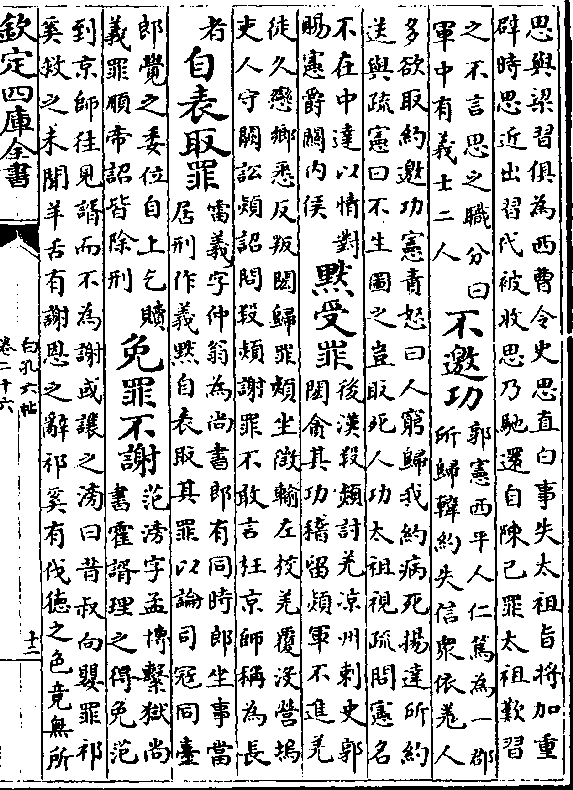 思與梁習俱為西曹令史思直白事失太祖旨將加重
辟時思近出習代被收思乃馳還自陳己罪太祖歎習
之不言思之職分曰
軍中有義士二人
不邀功
郭憲西平人仁篤為一郡
所歸韓約失信衆依羌人
多欲取約邀功憲責怒曰人窮歸我約病死揚達所約
送與疏憲曰不生圖之豈取死人功太祖視疏問憲名
不在中達以情對
賜憲爵關内侯
黙受罪
後漢段熲討羌涼州刺史郭
閎龠其功稽留熲軍不進羌
徒久戀鄉悉反叛閎歸罪熲坐徵輸左技羌覆沒營塢
吏人守闕訟熲詔問段熲謝罪不敢言枉京師稱為長
者
自表取罪
雷義字仲翁為尚書郎有同時郎坐事當
居刑作義黙自表取其罪以論司冦同臺
郎覺之委位自上乞贖
義罪順帝詔皆除刑
免罪不謝
范滂字孟博繫獄尚
書霍諝理之得免范
到京師往見諝而不為謝或讓之滂曰昔叔向嬰罪祁
奚救之未聞羊舌有謝恩之辭祁奚有伐德之色竟無所
欽定四庫全書
白孔六帖
卷二十六